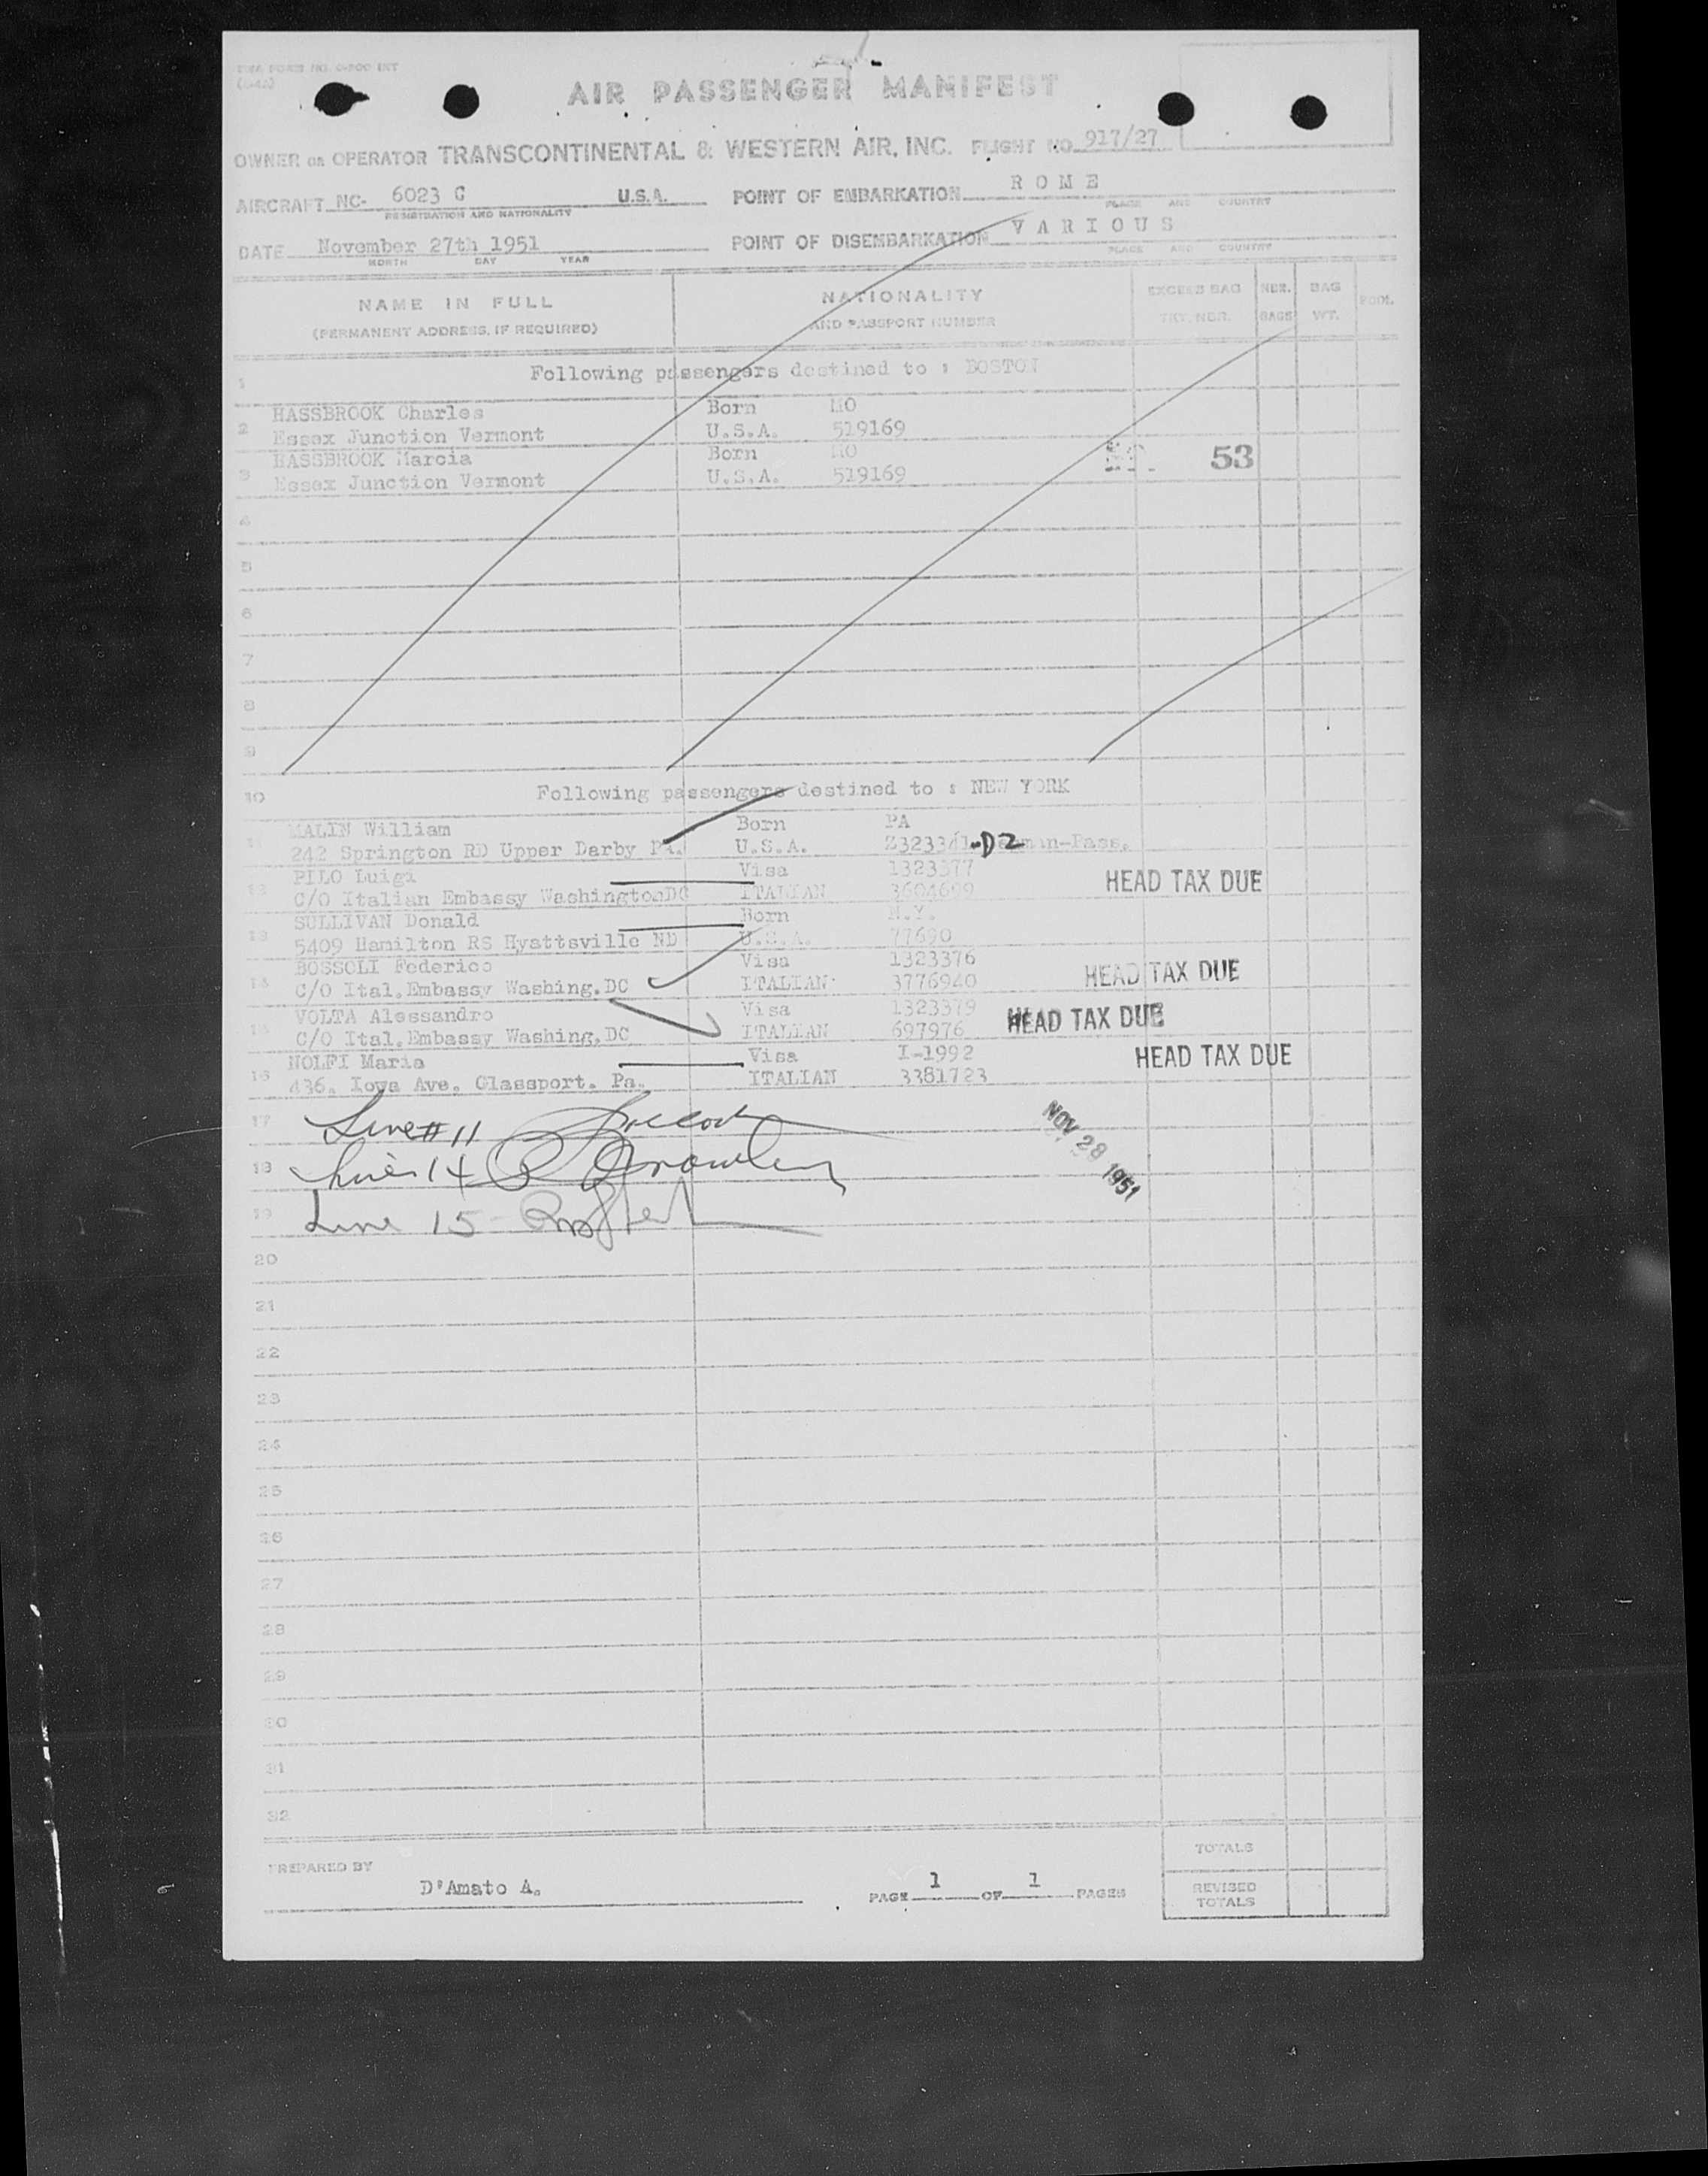 TWA FORM NO. C-200 INT
AIR PASSENGER MANIFEST
OWNER OR OPERATOR TRANSCONTINENTAL & WESTERN AIR, INC. FLIGHT NO. 917/27
AIRCRAFT NC- 6023 C U.S.A. POINT OF EMBARKATION R O M E
REGISTRATION AND NATIONALITY PLACE AND COUNTRY
DATE November 27th 1951 POINT OF DISEMBARKATION V A R I O U S
MONTH DAY YEAR PLACE AND COUNTRY
NAME IN FULL NATIONALITY EXCESS BAG NBR. BAG POOL
(PERMANENT ADDRESS, IF REQUIRED) AND PASSPORT NUMBER TKT. NBR. BAGS WT.
1 Following passengers destined to : BOSTON
HASSBROOK Charles Born MO
2 Essex Junction Vermont U.S.A. 519169
HASSBROOK Marcia Born MO
3 Essex Junction Vermont U.S.A. 519169
53
4
5
6
7
8
9
10 Following passengers destined to : NEW YORK
MALIN William Born PA
11 242 Springton RD Upper Darby PA. U.S.A. -D2
PILO Luigi Visa 1323377
12 C/O Italian Embassy WashingtonDC ITALIAN 3604699 HEAD TAX DUE
SULLIVAN Donald Born N.Y.
13 5409 Hamilton RS Hyattsville MD U.S.A. 77690
BOSSOLI Federico Visa 1323376
14 C/O Ital.Embassy Washing.DC ITALIAN 3776940 HEAD TAX DUE
VOLTA Alessandro Visa 1323379
15 C/O Ital.Embassy Washing.DC ITALIAN 697976 HEAD TAX DUE
NOLFI Maria Visa I-1992 HEAD TAX DUE
16 436, Iowa Ave. Glassport. Pa. ITALIAN 3381723
17 Line # 11
18 Line 14
19 Line 15
NOV 28 1951
20
21
22
23
24
25
26
27
28
29
30
31
32
TOTALS
PREPARED BY D'Amato A. PAGE 1 OF 1 PAGES
REVISED
TOTALS